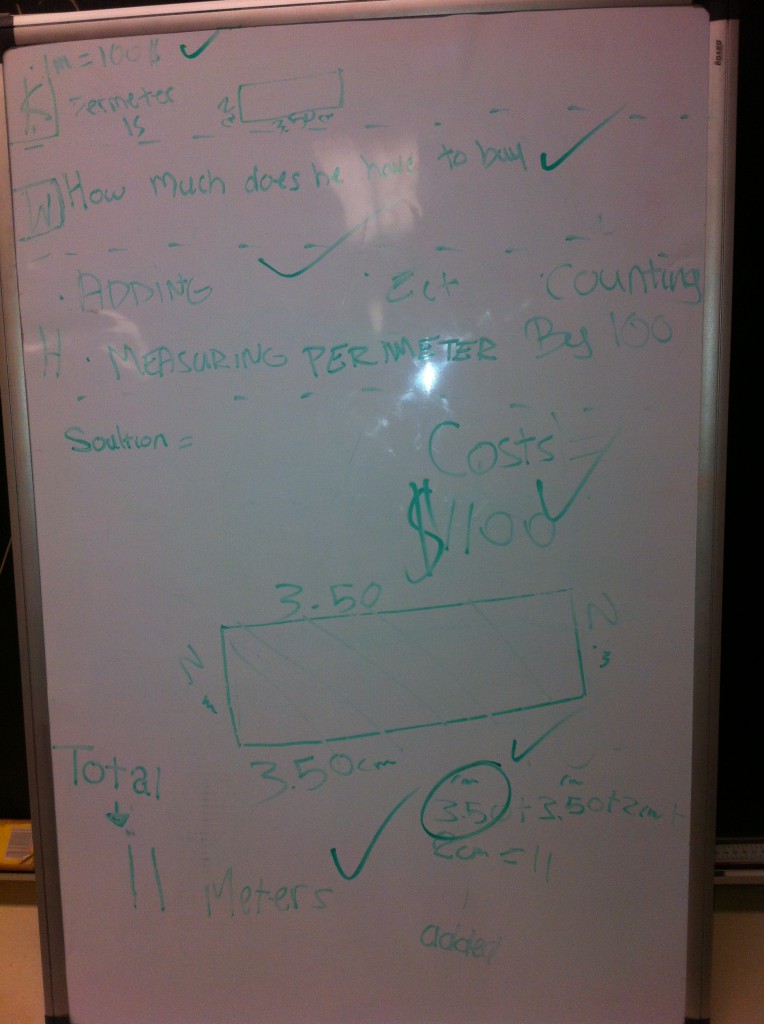 K 1m = 100$
Permeter
is
2c
3.50c
W How much does he have to buy
· ADDING · Ect · Counting
H · MEASURING PERIMETER By 100
Soultion =
Costs =
$1100
3.50
2
m
2
m
3.50cm
Total
11 Meters
cm cm
3.50+3.50+2cm+
2cm=11
added